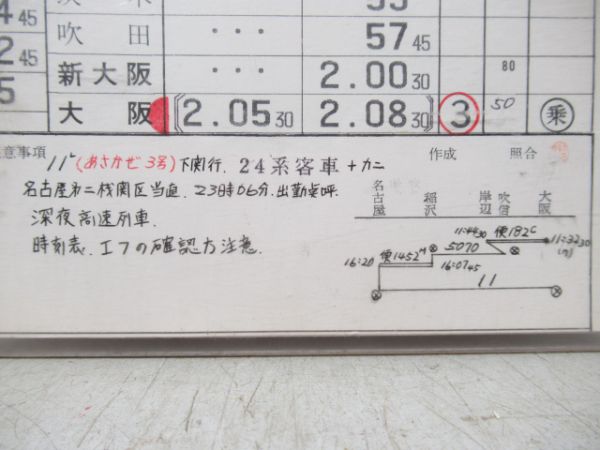 45
吹田 ・・・ 57 45
45
新大阪 ・・・ 2.00 30 80
5
大阪 〔2.05 30 2.08 30〕 3 50 乗
意事項 作成 照合
11レ (あさかぜ3号) 下関行. 24系客車+カニ
名古屋第二機関区当直. 23時06分. 出勤点呼.
深夜高速列車.
時刻表. エフの確認方注意.
名古屋 稲沢 岸辺 吹信 大阪
11:44 30 便182C 11:32 30
16:20 便1452M 5070
16:07 45
11